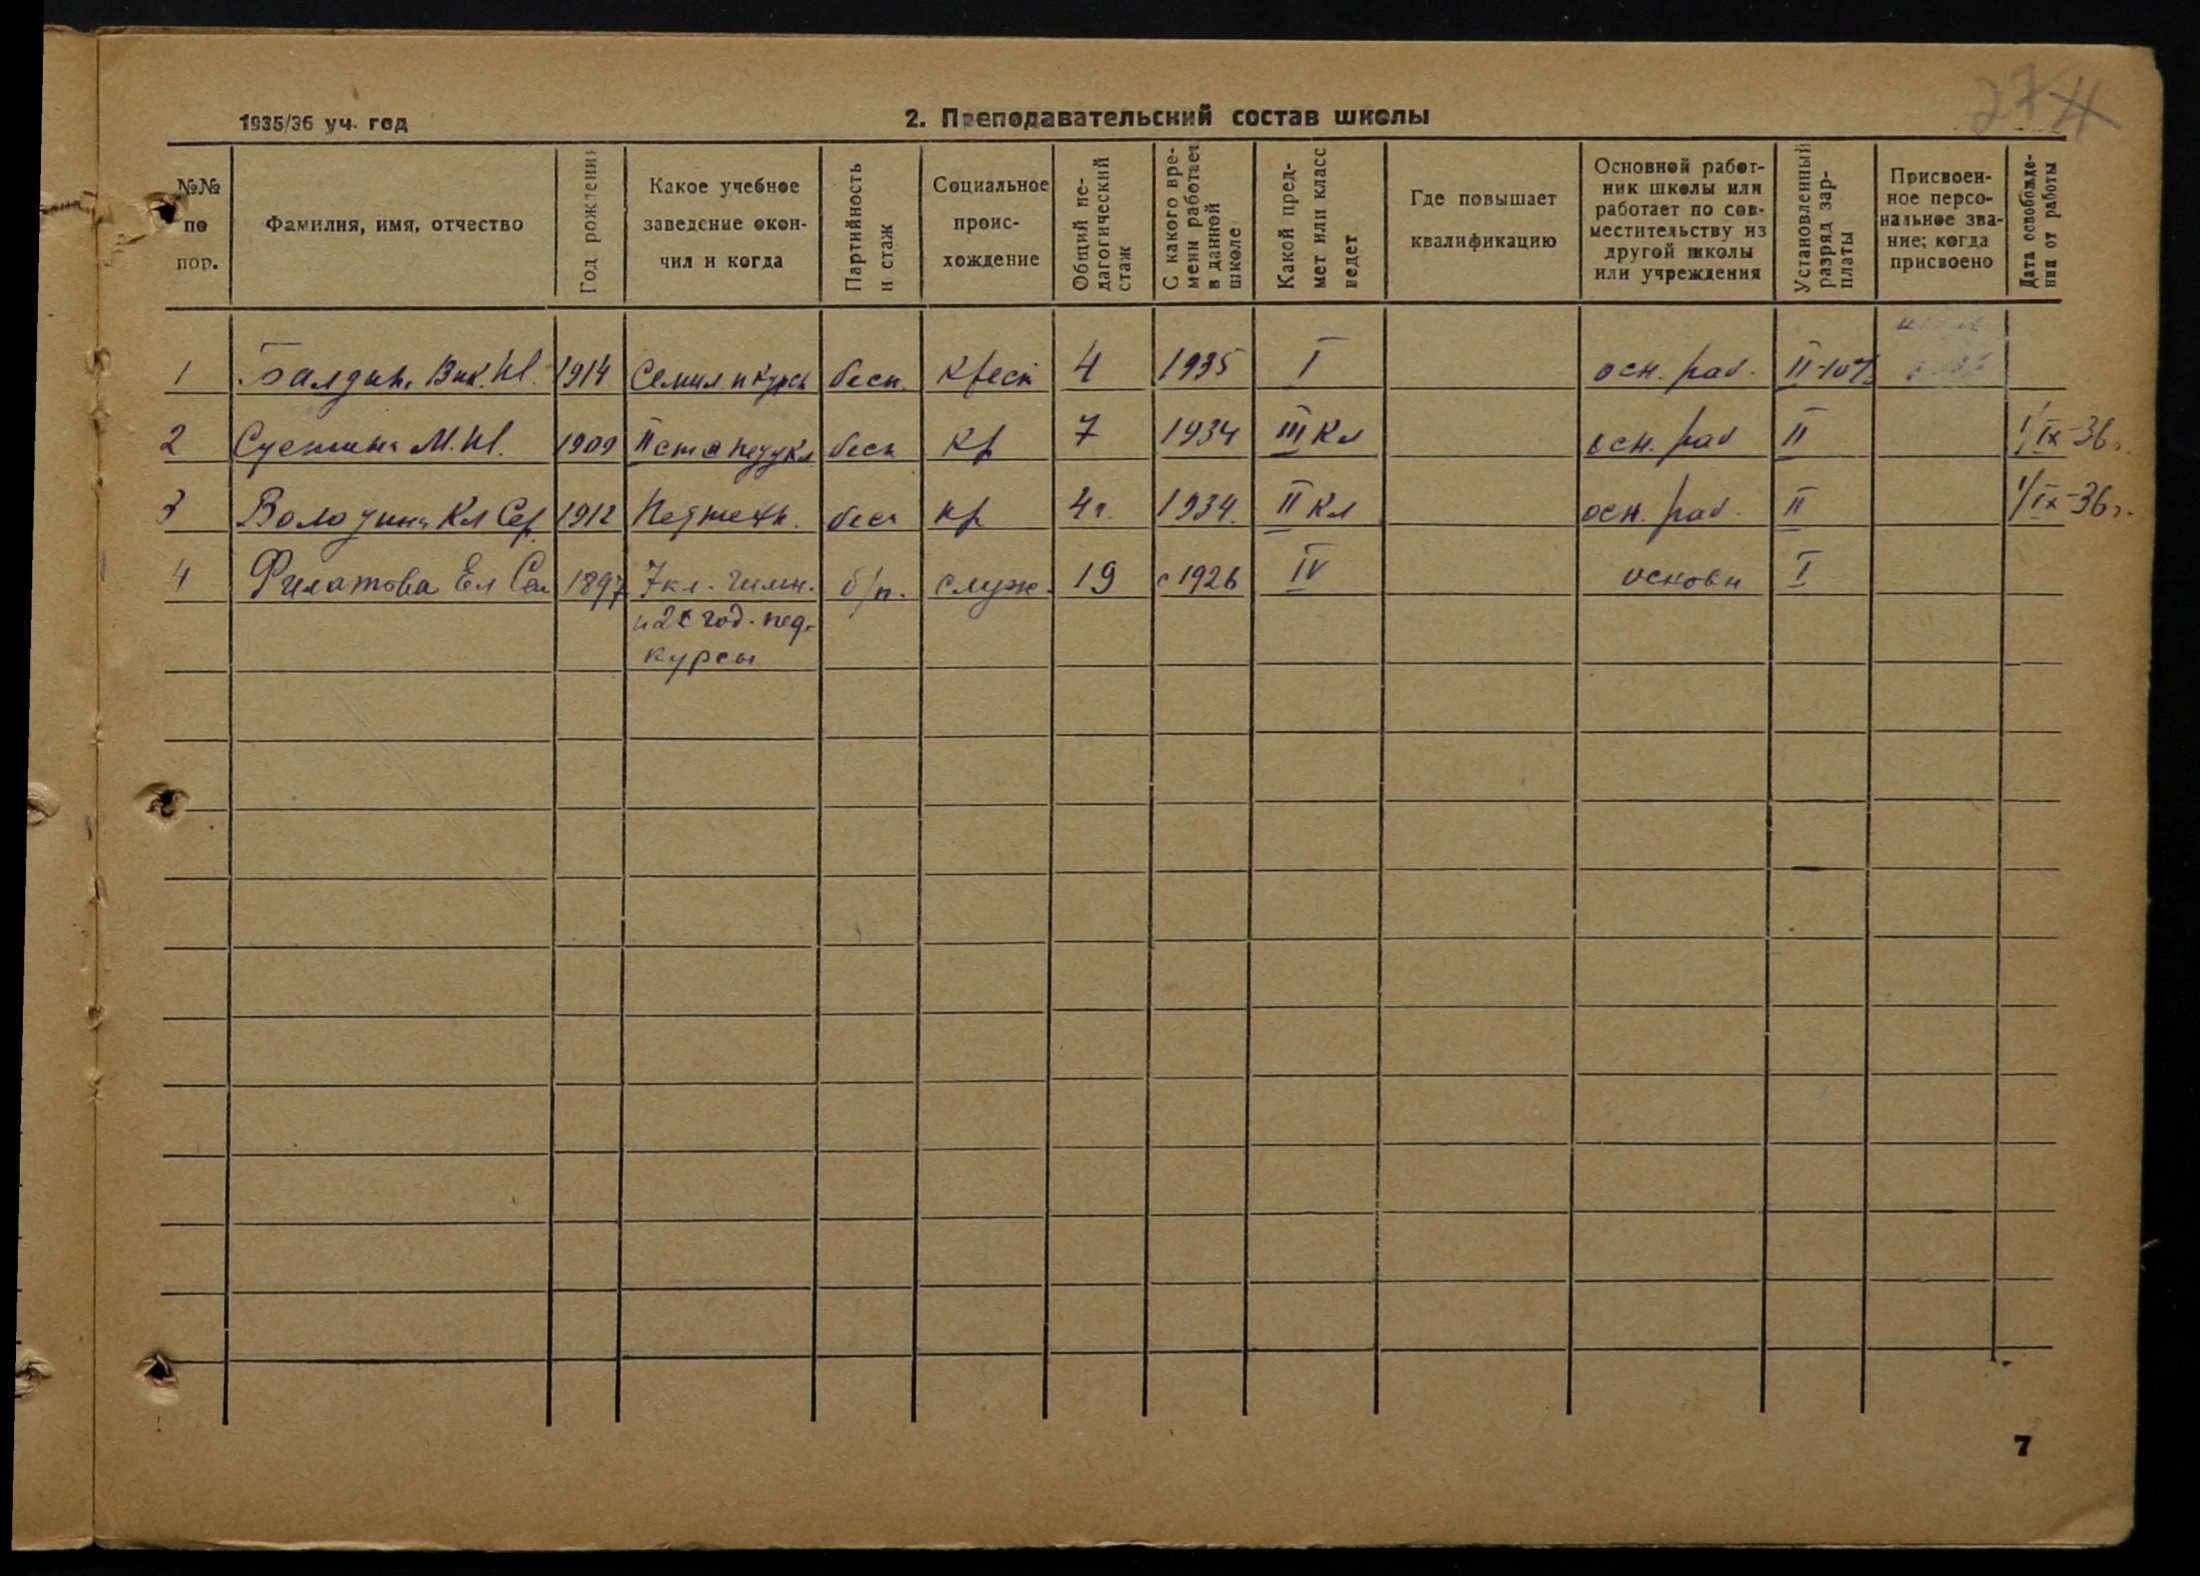 27 4
1935/36 уч. год
2. Преподавательский состав школы
№№ по пор.
Фамилия, имя, отчество
Год рождения
Какое учебное заведение окончил и когда
Партийность и стаж
Социальное происхождение
Общий педагогический стаж
С какого времени работает в данной школе
Какой предмет или класс ведет
Где повышает квалификацию
Основной работник школы или работает по совместительству из другой школы или учреждения
Установленный разряд зарплаты
Присвоенное персональное звание; когда присвоено
Дата освобождения от работы
1 Балдин. Вик. Ив. 1914 Семил. и курсы бесп. Крест 4 1935 I осн. раб. II-10%
2 М. Ив. 1909 II ст бесп Кр 7 1934 III Кл осн. раб II 1/IX-36г.
3 Володина Кл Сер. 1912 Педтехн. бесп Кр 4г. 1934. II Кл осн. раб. II 1/IX-36г.
4 Филатова Ел 1897 7 кл. гимн. б/п. служ. 19 с 1926 IV основн I
и 2х год. пед.
курсы
7